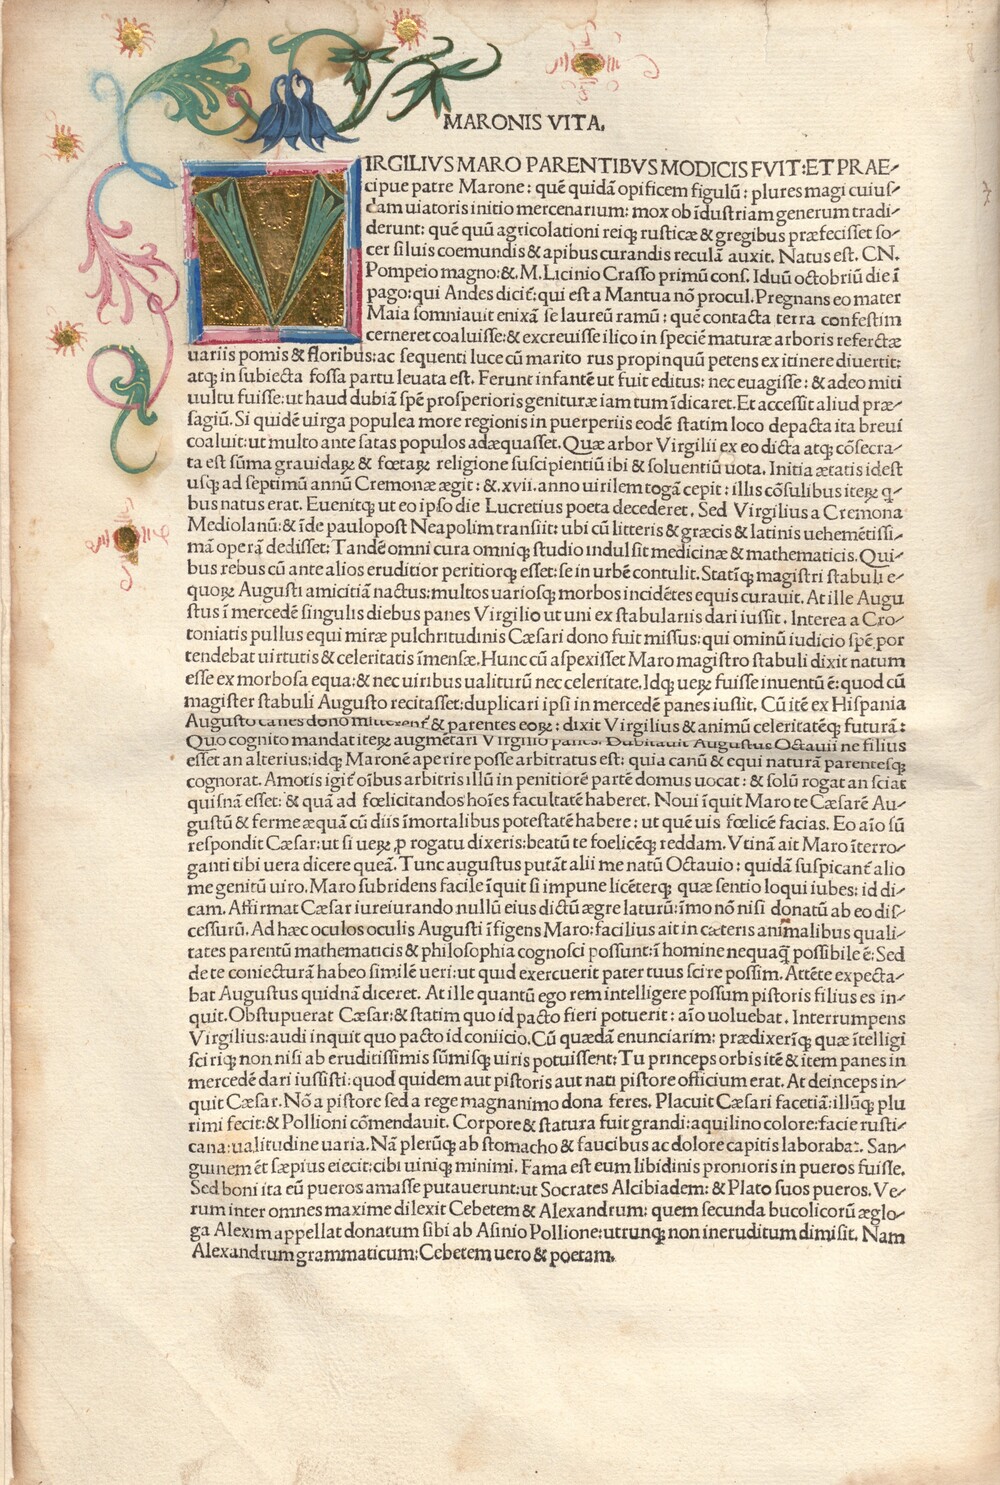 MARONIS VITA.
VIRGILIVS MARO PARENTIBVS MODICIS FVIT:ET PRAE-
cipue patre Marone: quē quidā opificem figulū: plures magi cuiuſ-
dam uiatoris initio mercenarium: mox ob īduſtriam generum tradi-
derunt: quē quū agricolationi reiqꝫ ruſticæ & gregibus præfeciſſet ſo-
cer ſiluis coemundis & apibus curandis reculā auxit. Natus eſt. CN.
Pompeio magno:&. M. Licinio Craſſo primū conſ. Iduū octobriū die ī
pago:qui Andes dicit᷑:qui eſt a Mantua nō procul. Pregnans eo mater
Maia ſomniauit enixā ſe laureū ramū: quē contacta terra confeſtim
cerneret coaluiſſe:& excreuiſſe ilico in ſpeciē maturæ arboris refertæ
uariis pomis & floribus:ac ſequenti luce cū marito rus propinquū petens ex itinere diuertit:
atqꝫ in ſubiecta foſſa partu leuata eſt. Ferunt infantē ut fuit editus: nec euagiſſe: & adeo miti
uultu fuiſſe:ut haud dubiā ſpē proſperioris genituræ iam tum īdicaret. Et acceſſit aliud præ-
ſagiū. Si quidē uirga populea more regionis in puerperiis eodē ſtatim loco depacta ita breui
coaluit:ut multo ante ſatas populos adæquaſſet. Quæ arbor Virgilii ex eo dicta atqꝫ cōſecra-
ta eſt ſūma grauidaꝝ & fœtaꝝ religione ſuſcipientiū ibi & ſoluentiū uota. Initia ætatis id eſt
uſqꝫ ad ſeptimū annū Cremonæ ægit: &. xvii. anno uirilem togā cepit: illis cōſulibus iteꝝ q-
bus natus erat. Euenitqꝫ ut eo ipſo die Lucretius poeta decederet. Sed Virgilius a Cremona
Mediolanū:& īde paulo poſt Neapolim tranſiit: ubi cū litteris & græcis & latinis uehemētiſſi-
mā operā dediſſet: Tandē omni cura omniqꝫ ſtudio indulſit medicinæ & mathematicis. Qui-
bus rebus cū ante alios eruditior peritiorqꝫ eſſet: ſe in urbē contulit. Statīqꝫ magiſtri ſtabuli e-
quoꝝ Auguſti amicitiā nactus: multos uarioſqꝫ morbos incidētes equis curauit. At ille Augu
ſtus ī mercedē ſingulis diebus panes Virgilio ut uni ex ſtabulariis dari iuſſit. Interea a Cro-
toniatis pullus equi miræ pulchritudinis Cæſari dono fuit miſſus: qui ominū iudicio ſpē por
tendebat uirtutis & celeritatis īmenſæ. Hunc cū aſpexiſſet Maro magiſtro ſtabuli dixit natum
eſſe ex morboſa equa:& nec uiribus ualiturū nec celeritate. Idqꝫ ueꝝ fuiſſe inuentū ē: quod cū
magiſter ſtabuli Auguſto recitaſſet: duplicari ipſi in mercedē panes iuſſit. Cū itē ex Hiſpania
Auguſto canes dono mitterent᷑ & parentes eoꝝ: dixit Virgilius & animū celeritatēqꝫ futurā:
Quo cognito mandat iteꝝ augmētari Virgilio panes. Dubitauit Auguſtus Octauii ne filius
eſſet an alterius: idqꝫ Maronē aperire poſſe arbitratus eſt: quia canū & equi naturā parenteſqꝫ
cognorat. Amotis igit᷑ oībus arbitris illū in penitiorē partē domus uocat: & ſolū rogat an ſciat
quiſnā eſſet: & quā ad fœlicitandos hoīes facultatē haberet. Noui īquit Maro te Cæſarē Au-
guſtū & ferme æquā cū diis īmortalibus poteſtatē habere: ut quē uis fœlicē facias. Eo aīo ſū
reſpondit Cæſar: ut ſi ueꝝ ꝓ rogatu dixeris: beatū te foelicēqꝫ reddam. Vtinā ait Maro īterro-
ganti tibi uera dicere queā. Tunc auguſtus putāt alii me natū Octauio: quidā ſuſpicant᷑ alio
me genitū uiro. Maro ſubridens facile īquit ſi impune licēterqꝫ quæ ſentio loqui iubes: id di-
cam. Affirmat Cæſar iureiurando nullū eius dictū ægre laturū: īmo nō niſi donatū ab eo diſ-
ceſſurū. Ad hæc oculos oculis Auguſti īfigens Maro: facilius ait in cæteris animalibus quali-
tates parentū mathematicis & philoſophia cognoſci poſſunt: ī homine nequaqꝫ poſſibile ē: Sed
de te coniecturā habeo ſimilē ueri: ut quid exercuerit pater tuus ſcire poſſim. Attēte expecta-
bat Auguſtus quidnā diceret. At ille quantū ego rem intelligere poſſum piſtoris filius es in-
quit. Obſtupuerat Cæſar:& ſtatim quo id pacto fieri potuerit: aīo uoluebat. Interrumpens
Virgilius: audi inquit quo pacto id coniicio. Cū quædā enunciarim: prædixerīqꝫ quæ ītelligi
ſciriqꝫ non niſi ab eruditiſſimis ſūmiſqꝫ uiris potuiſſent: Tu princeps orbis itē & item panes in
mercedē dari iuſſiſti: quod quidem aut piſtoris aut nati piſtore officium erat. At deinceps in-
quit Cæſar. Nō a piſtore ſed a rege magnanimo dona feres. Placuit Cæſari facetia: illūqꝫ plu
rimi fecit:& Pollioni cōmendauit. Corpore & ſtatura fuit grandi: aquilino colore: facie ruſti-
cana: ualitudine uaria. Nā plerūqꝫ ab ſtomacho & faucibus ac dolore capitis laborabat. San-
guinem ēt ſæpius eiecit: cibi uiniqꝫ minimi. Fama eſt eum libidinis pronioris in pueros fuiſſe.
Sed boni ita eū pueros amaſſe putauerunt: ut Socrates Alcibiadem: & Plato ſuos pueros. Ve-
rum inter omnes maxime dilexit Cebetem & Alexandrum: quem ſecunda bucolicorū æglo-
ga Alexim appellat donatum ſibi ab Aſinio Pollione: utrunqꝫ non ineruditum dimiſit. Nam
Alexandrum grammaticum: Cebetem uero & poetam.